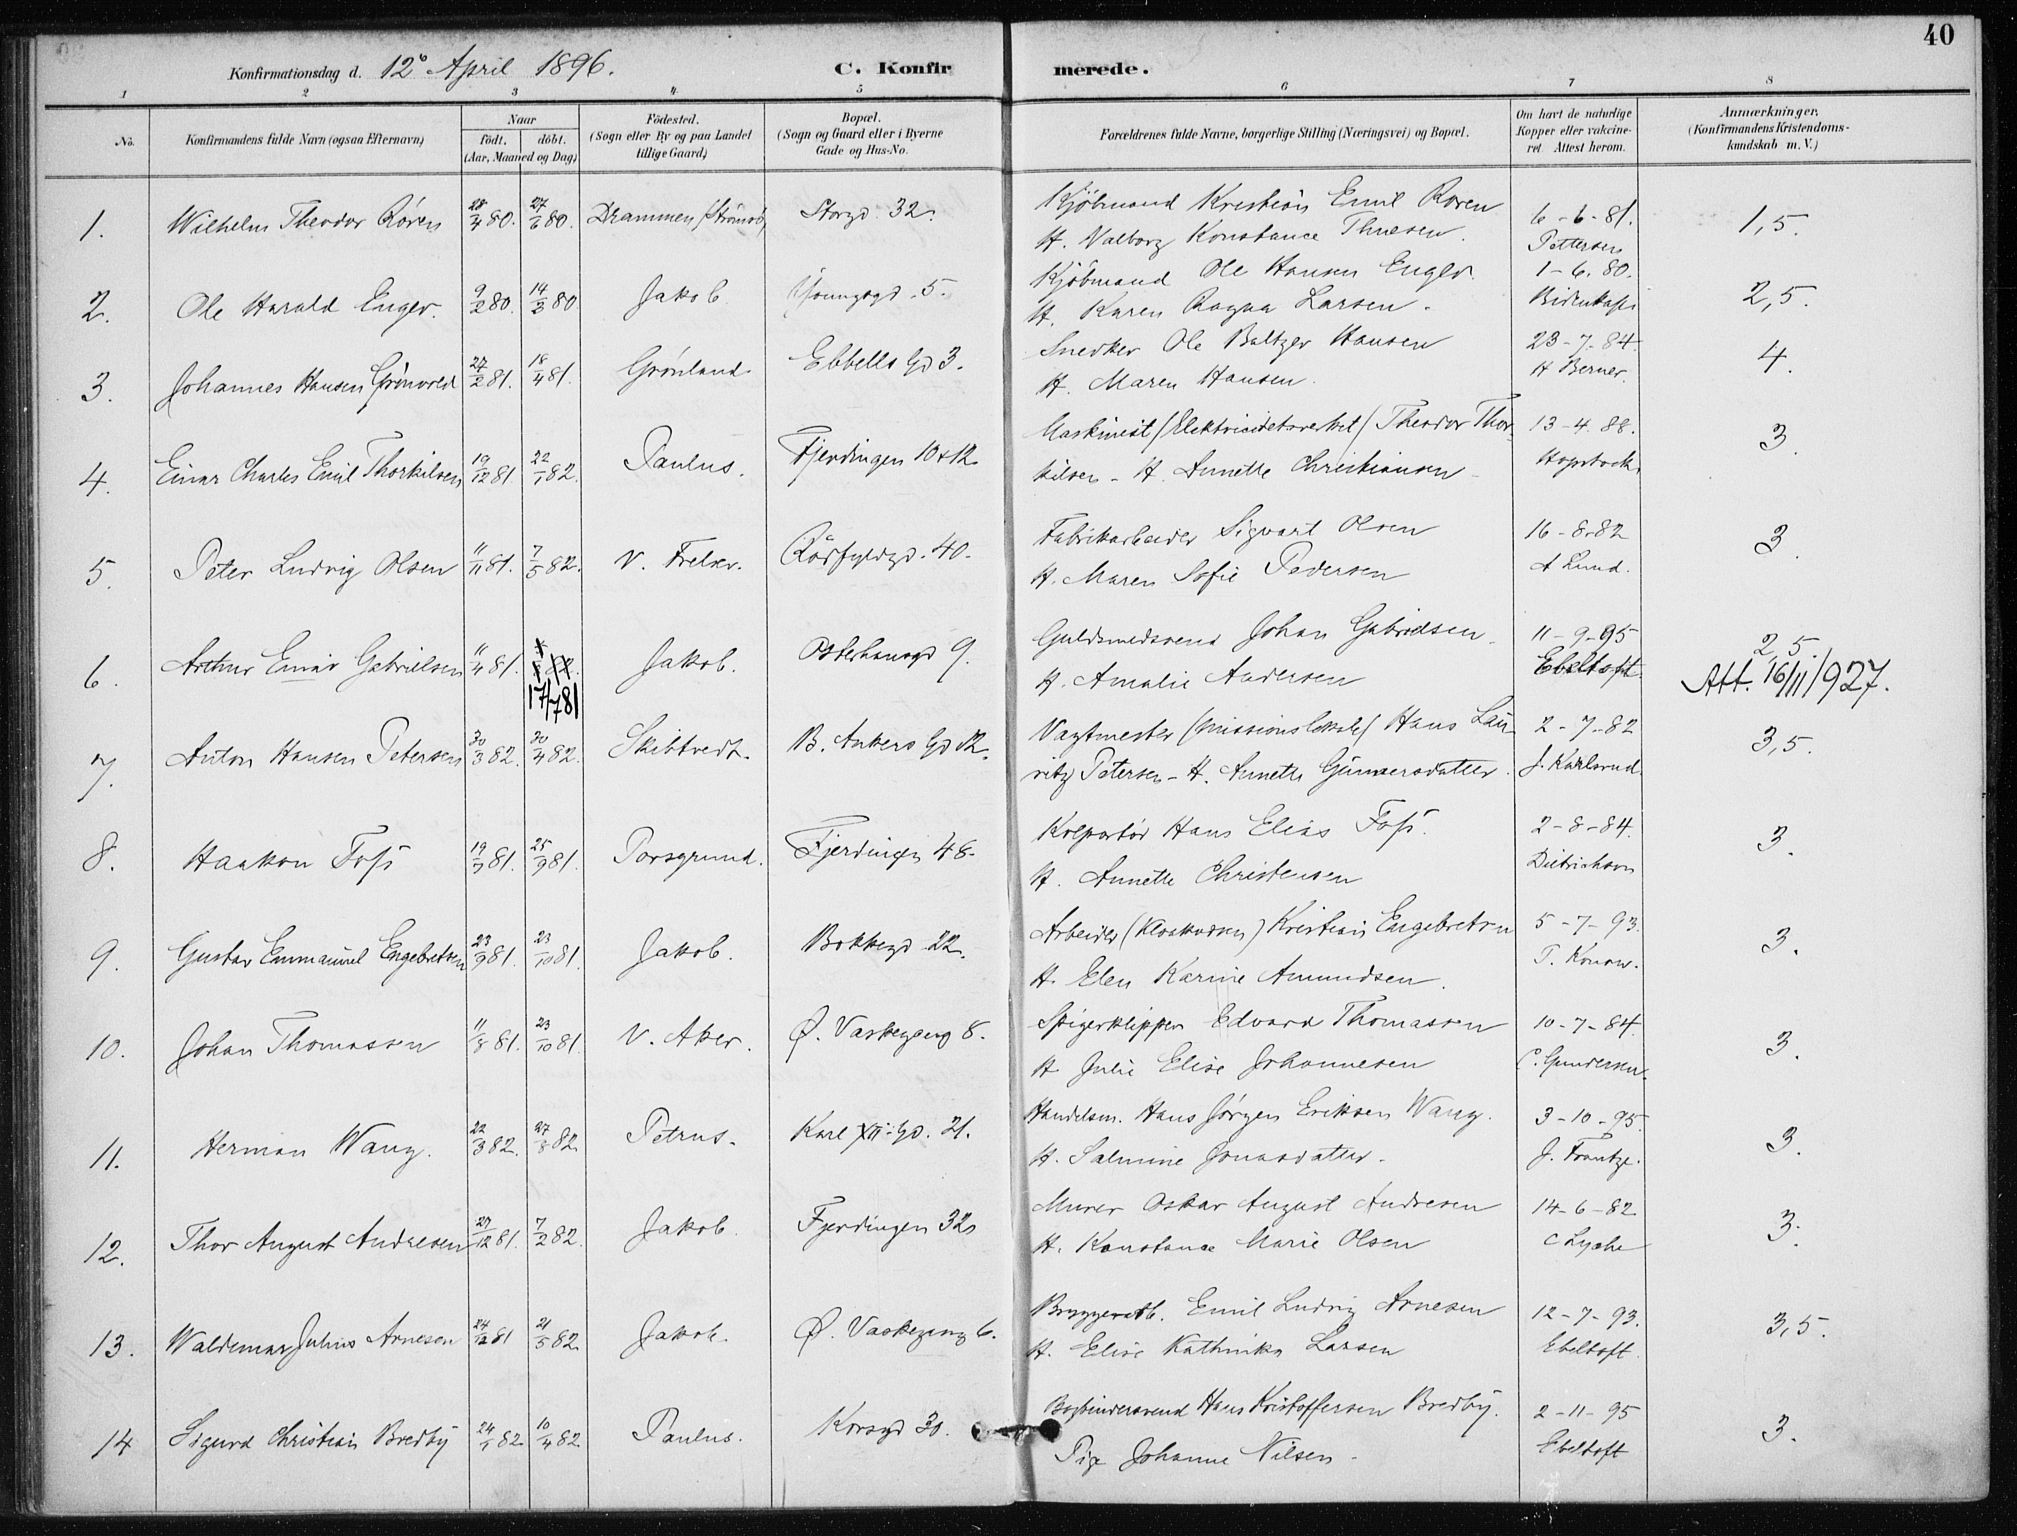 40
Konfirmationsdag d. 12te April 1896.
C. Konfirmerede.
1 2 3 4 5 6 7 8
No. Konfirmandens fulde Navn (ogsaa Efternavn) Naar födt. döbt. (Aar, Maaned og Dag) Födested. (Sogn eller By og paa Landet tillige Gaard) Bopæl. (Sogn og Gaard eller i Byerne Gade og Hus-No. Forældrenes fulde Navne, borgerlige Stilling (Næringsvei) og Bopæl. Om havt de naturlige Kopper eller vakcineret Attest herom. Anmærkninger. (Konfirmandens Kristendomskundskab m.V.)
1. Wilhelm Theodor Roren 28/4 80. 27/6 80. Drammen (Strömsö) Storgd. 32. Kjöbmand Kristian Emil Roren 6-6-81. 1,5.
H. Valborg Konstance Thuesen. Pettersen
2. Ole Harald Enger. 9/2 80. 14/3 80 Jakob Youngsgd. 5. Kjöbmand Ole Hansen Enger 1-6-80. 2,5.
H. Karen Ragna Larsen. Bidenkap
3. Johannes Hansen Grönvold 27/2 81. 18/4 81. Grønland Ebbells Gd 3. Snedker Ole Baltzer Hansen 23-7-84. 4.
H. Maren Hansen. H Berner.
4. Einar Charles Emil Thorkilsen 19/12 81 22/1 82. Paulus. Fjerdingen 10&12 Maskinist (Elektricitetsverket) Theodor Thor- 13-4-88. 3.
kilsen - H. Annette Christiansen Hopstock
5. Peter Ludvig Olsen 11/11 81. 7/5 82. V. Frelser. Rödfyldgd. 40. Fabrikarbeider Sigvart Olsen 16-8-82 3.
H. Maren Sofie Pedersen A Lund.
6. Arthur Einar Gabrielsen 11/4 81. 17/7 81 Jakob. Osterhausgd 9. Guldsmedsvend Johan Gabrielsen 11-9-95 2,5.
H. Amalie Andersen Ebeltoft. Att. 16/11/927.
7. Anton Hansen Petersen 30/3 82. 30/4 82. Skibtvedt. B. Ankers Gd 12. Vagtmester (Missionslokale) Hans Lau- 2-7-82 3,5.
ritz Petersen - H. Annette Gunnersdatter. J. Karlsrud.
8. Haakon Foss 19/7 81. 25/9 81. Porsgrund. Fjerdingen 48. Kolportör Hans Elias Foss. 2-8-84. 3.
H. Annette Christensen Dietrichson
9. Gustav Emmanuel Engebretsen 23/9 81. 23/10 81. Jakob. Bakkegd 22. Arbeider (Kloakvæsen) Kristian Engebretsen 5-7-93. 3.
H. Elen Karine Amundsen. T. Konow.
10. Johan Thomassen 11/8 81. 23/10 81. V. Aker. Ø. Vaskegang 8. Spigerklipper Edvard Thomassen 10-7-84. 3.
H Julie Elise Johannesen C. Gundersen.
11. Herman Wang. 22/3 82. 27/8 82 Petrus. Karl XII Gd. 21. Handelsm. Hans Jörgen Eriksen Wang. 3-10-95. 3.
H. Salmine Jonasdatter. J. Frantze.
12. Thor August Andresen 27/12 81. 7/2 82. Jakob. Fjerdingen 32 Murer Oskar August Andresen 14-6-82 3.
H. Konstance Marie Olsen C Lyche
13. Waldemar Julius Arnesen 24/12 81 21/5 82. Jakob. Ø. Vaskegang 6. Bryggerarb. Emil Ludvig Arnesen 12-7-93. 3,5.
H. Elise Kathinka Larsen Ebeltoft.
14 Sigurd Christian Bredby 24/1 82 10/4 82. Paulus. Korsgd 30. Bogbindersvend Hans Kristoffersen Bredby. 2-11-95 3.
Pige Johanne Nilsen. Ebeltoft